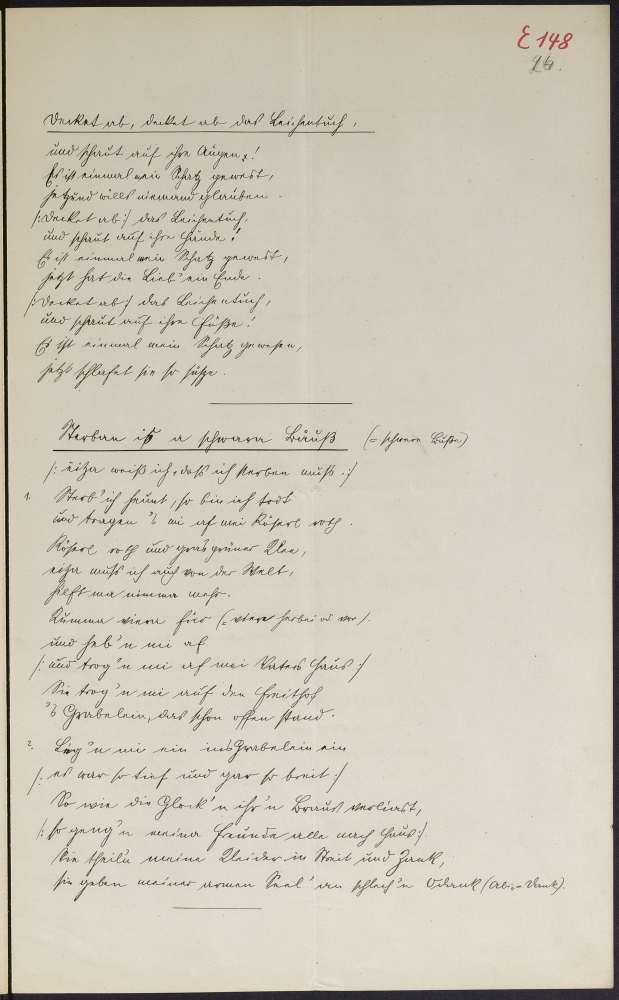 E 148
26.
Decket ab, decket ab das Leichentuch,
und schaut auf ihre Augen,!
Es ist einmal mein Schatz gewest,
jetzund wills niemand glauben.
/: Decket ab :/ das Leichentuch,
und schaut auf ihre Hände!
Es ist einmal mein Schatz gewest,
jetzt hat die Lieb' ein Ende.
/: Decket ab :/ das Leichentuch,
und schaut auf ihre Füße!
Es ist einmal mein Schatz gewesen,
jetzt schlafet sie so süße.
Sterban is a schwara Bäuß (= schwere Buße)
/: eitza weiß ich, dass ich sterben muss :/
1. Sterb' ich heunt, so bin ich todt
und tragen 's mi af mei Röserl roth.
Röserl roth und grasgrüner Klee,
eitza muss ich auch von der Welt,
hilft ma nimma mehr.
Kumma viera für (= viere herbei od vor).
und heb'n mi af
/: und trog'n mi af mei Vaters Haus :/
Sie trog'n mi auf den Freithof
's Grabelein, das schon offen stand.
2. Leg'n mi ein ins Grabelein ein
/: es war so tief und gar so breit :/
So wie die Glock'n ihr'n Braus verliast,
/: so geng'n meina Freunde alle nach Haus :/
Sie theiln meine Kleider in Streit und Zank,
sie geben meiner armen Seel' an schlech'n Odank (Ab = Dank).